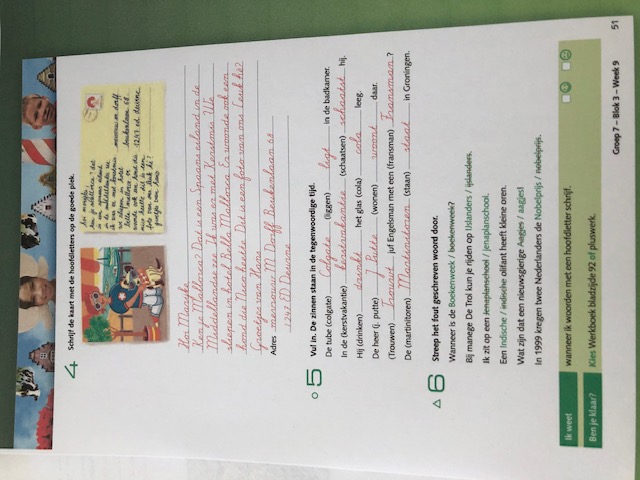 4 Schrijf de kaart met de hoofdletters op de goede plek.
Hoi Marijke
Ken je Mallorca? Dat is een Spaans eiland in de
Middellandse zee. Ik was er met Kerstmis. We
sliepen in hotel Bella Mallorca. Er woonde ook een
hond die Nico heette. Dit is een foto van ons. Leuk hè?
Groetjes van Hans
Adres mevrouw M. Dorff Beukenlaan 68
1247 FD Deurne
5 Vul in. De zinnen staan in de tegenwoordige tijd.
De tube (colgate) Colgate (liggen) ligt in de badkamer.
In de (kerstvakantie) kerstvakantie (schaatsen) schaatst hij.
Hij (drinken) drinkt het glas (cola) cola leeg.
De heer (j. putte) J. Putte (wonen) woont daar.
(Trouwen) Trouwt juf Engelsman met een (fransman) Fransman?
De (martinitoren) Martinitoren (staan) staat in Groningen.
6 Streep het fout geschreven woord door.
Wanneer is de Boekenweek / boekenweek?
Bij manege De Trol kun je rijden op IJslanders / ijslanders.
Ik zit op een Jenaplanschool / jenaplanschool.
Een Indische / indische olifant heeft kleine oren.
Wat zijn dat een nieuwsgierige Aagjes / aagjes!
In 1999 kregen twee Nederlanders de Nobelprijs / nobelprijs.
Ik weet wanneer ik woorden met een hoofdletter schrijf.
Ben je klaar? Kies Werkboek bladzijde 92 of pluswerk.
Groep 7 – Blok 3 – Week 9 51